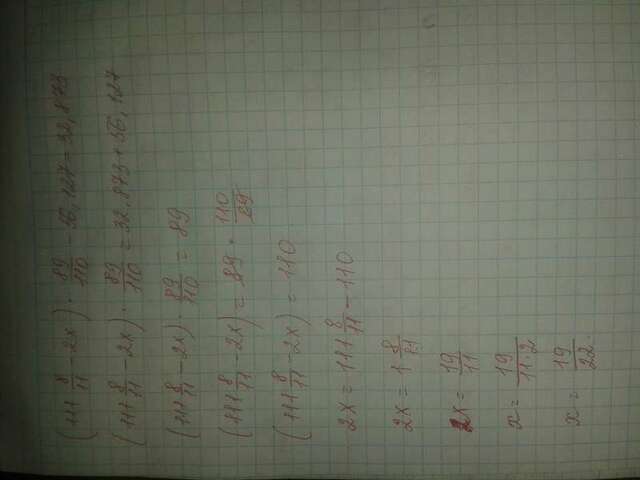 (111 8/11 - 2x) · 89/110 - 56,127 = 32,873
(111 8/11 - 2x) · 89/110 = 32,873 + 56,127
(111 8/11 - 2x) · 89/110 = 89
(111 8/11 - 2x) = 89 · 110/89
(111 8/11 - 2x) = 110
2x = 111 8/11 - 110
2x = 1 8/11
2x = 19/11
x = 19/11·2
x = 19/22.